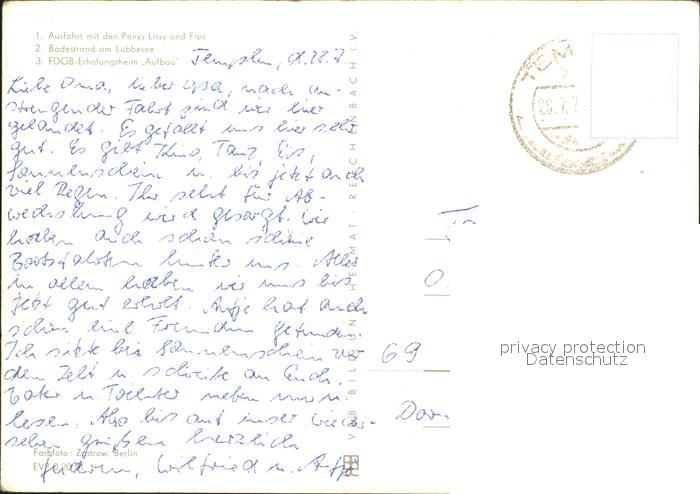 1. Ausfahrt mit den Ponys Lissy und Fips
2. Badestrand am Lübbesee
3. FDGB-Erholungsheim „Aufbau"
Templin, d. 28.7.
Liebe Oma, lieber Opa, nach an-
strengender Fahrt sind wir hier
gelandet. Es gefällt uns hier sehr
gut. Es gibt Kino, Tanz, Eis,
Sonnenschein u. bis jetzt auch
viel Regen. Ihr seht für Ab-
wechslung wird gesorgt. Wir
haben auch schon schöne
Bootsfahrten hinter uns. Alles
in allem haben wir uns bis
jetzt gut erholt. Antje hat auch
schon eine Freundin gefunden.
Ich sitze bei Sonnenschein vor
dem Zelt u. schreibe an Euch.
Vater u. Tochter neben mir u.
lesen. Also bis auf unser Wieder-
sehen grüßen herzlich
Wilfried u. Antje
Farbfoto: Zastrow, Berlin
VEB BILD UND HEIMAT · REICHENBACH I. V.
TEM
69
Dor-
privacy protection
Datenschutz